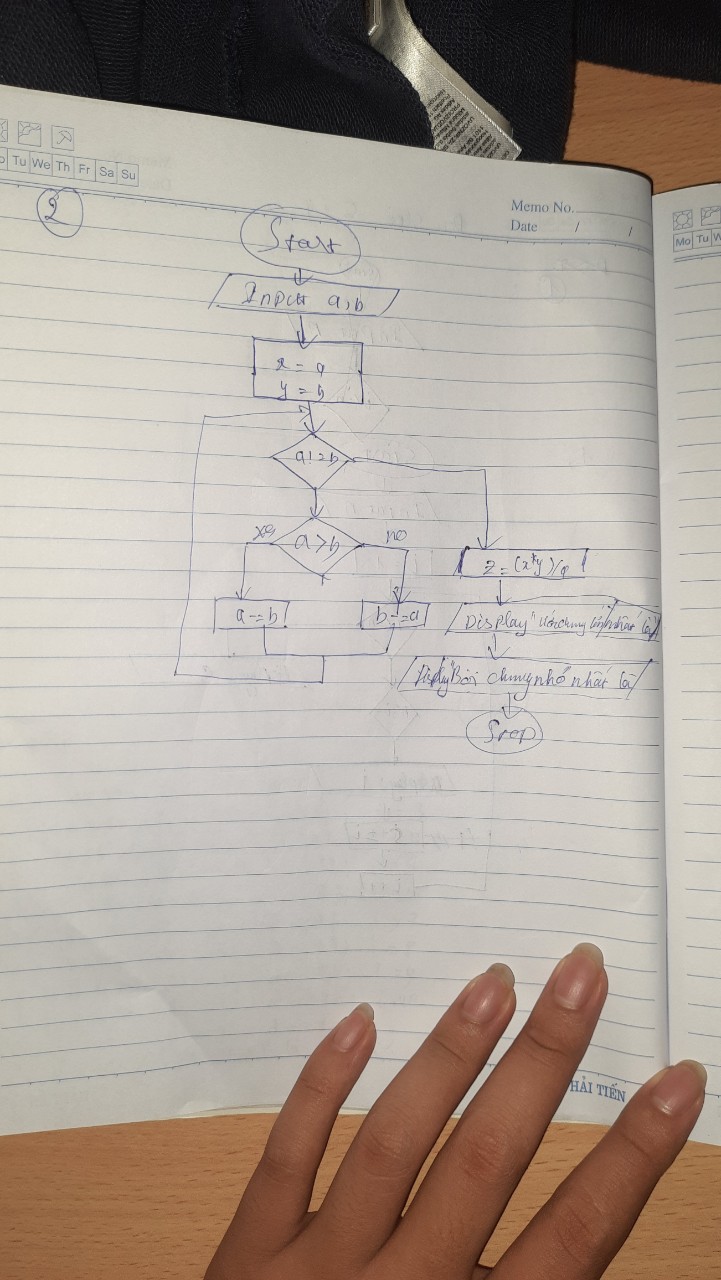 Tu We Th Fr Sa Su
Memo No.
Date / /
Mo Tu W
2
Start
Input a,b
x = a
y = b
a!=b
yes
a>b
no
a-=b
b-=a
z=(x*y)/a
Display "Ước chung lớn nhất là"
Display "Bội chung nhỏ nhất là
Stop
HẢI TIẾN